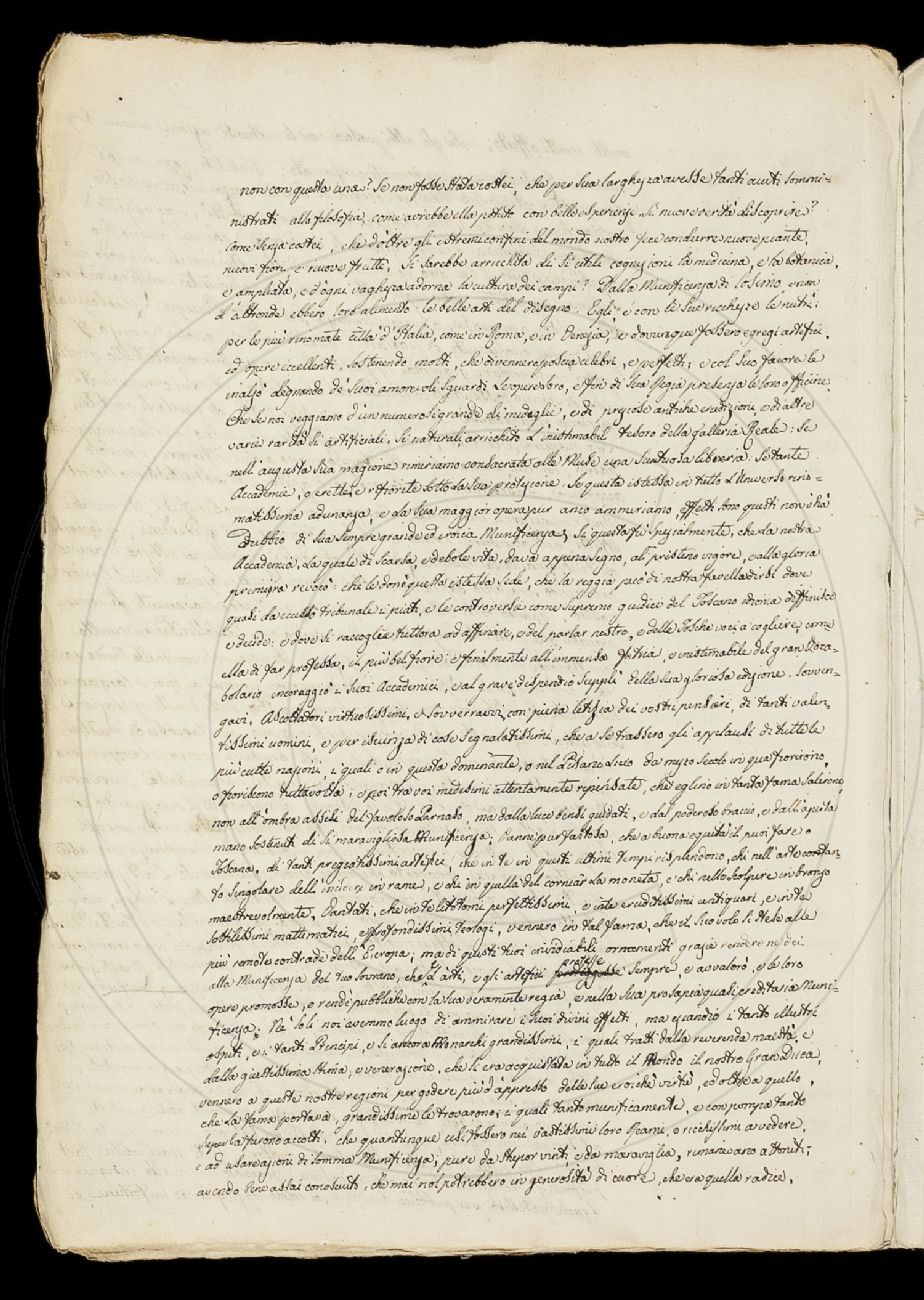 non con questa una? Se non fosse stata costei, che per sua larghezza avesse tanti aiuti sommi=
nistrati alla filosofia, come avrebbe ella potuto con belle esperienze sì nuove verità discoprire?
Come senza costei, che d'oltre gli estremi confini del mondo nostro fece condurre nuove piante,
nuovi fiori e nuove frutte, si sarebbe arricchita di sì utili cognizioni la medicina, e la botanica,
e ampliata, e d'ogni vaghezza adorna la cultura dei campi? Dalla Munificenza di Cosimo, e non
d'altronde ebbero loro alimento le belle arti del disegno. Egli e con le sue ricchezze le nutrì:
per le più rinomate città d'Italia, come in Roma, e in Venezia, e dovunque fossero egregi artefici
ed opere eccellenti, sostenendo molti, che divennero poscia celebri, e perfetti; e col suo favore le
inalzò degnando de' suoi amorevoli sguardi le opere loro, e fin di sua Regia presenza le loro officine.
Che se noi veggiamo d'un numero sì grande di medaglie, e di preziose antiche erudizioni, e di altre
varie rarità sì artificiali, sì naturali arricchito l'inistimabil tesoro della galleria Reale: se
nell'augusta sua magione rimiriamo consacrata alle Muse una suntuosa libreria: se tante
Accademie, o erette, e rifiorite sotto la sua protezione: se questa istessa in tutto l'Universo rino=
matissima adunanza, e la sua maggior opera pur anco ammiriamo effetti sono questi non v'ha
dubbio di sua sempre grande ed eroica Munificenza. Sì questa fù spezialmente, che la nostra
Accademia, la quale di scarsa, e debole vita, dava appena segno, al pristino vigore, e alla gloria
primiera revocò: che le donò questa istessa sede, che la reggia può di nostra favella dirsi dove
quasi da eccelso tribunale i piati, e le controversie come supremo giudice del Toscano idioma diffinisce
e decide: e dove si raccoglie tuttora ad affinare, e del parlar nostro, e delle Tosche voci a cogliere, come
ella di far professa, il più bel fiore: e finalmente all'immensa fatica, e inestimabile del gran Voca=
bolario incoraggiò i suoi Accademici, e al grave dispendio supplì della sua gloriosa edizione. Sovven=
gavi, Ascoltatori virtuosissimi, e sovverravvi con piena letizia dei vostri pensieri, di tanti valen=
tissimi uomini, e per isciunza di cose segnalatissimi, che a se trassero gli applausi di tutte le
più culte nazioni, i quali o in questa dominante, o nel Pisano Liceo da mezo secolo in qua fiorirono,
o fioriscono tuttavolta; e poi tra voi medesimi attentamente ripensate, che eglino in tanta fama salirono
non all'ombra assisi del favoloso Parnaso, ma dalla luce bensì guidati, e dal poderoso braccio, e dall'aperta
mano sostenuti di sì maravigliosa Munificenza. Vanne pur fastosa, che a buona equità il puoi fare o
Toscana, di tanti pregiatissimi artefici, che in te in questi ultimi tempi risplendono, chi nell'arte cotan=
to singolare dell'incidere in rame, e chi in quella del corniar la moneta, e chi nello scolpire in bronzo
maestrevolmente. Vantati, che in te litotomi perfettissimi, e in te eruditissimi antiquari, e in te
sottilissimi mattematici, e profondissimi Teologi, vennero in tal fama, che il suo volo si stese alle
più remote contrade dell'Europa; ma di questi tuoi invidiabili ornamenti grazie rendere ne dei
alla Munificenza del tuo Sovrano, che l'arti, e gli artefici protesse sempre, e avvalorò, e le loro
opere promosse, e rende pubbliche con la sua veramente regia, e nella sua prosapia quasi ereditaria Muni=
ficenza. Nè soli noi avemmo luogo di ammirare i suoi divini effetti, ma eziandio i tanto illustri
ospiti, e i tanti Principi, e sì ancora Monarchi grandissimi, i quali tratti dalla reverenda maestà, e
dalla giustissima stima, e venerazione, che si era acquistata in tutto il Mondo il nostro Gran Duca,
vennero a queste nostre regioni per godere più d'appresso delle sue eroiche virtù, ed oltre a quello,
che la fama portava, grandissime le trovarono; i quali tanto munificamente, e con pompa tanto
superba furono accolti, che quantunque essi fossero nei vastissimi loro Reami, e ricchissimi a vedere,
e ad usare azioni di somma Munificenza; pure da stupor vinti, e da maraviglia, rimanevano attoniti;
avendo bene assai conosciuto, che mai nol potrebbero in generosità di cuore, che era quella radice,